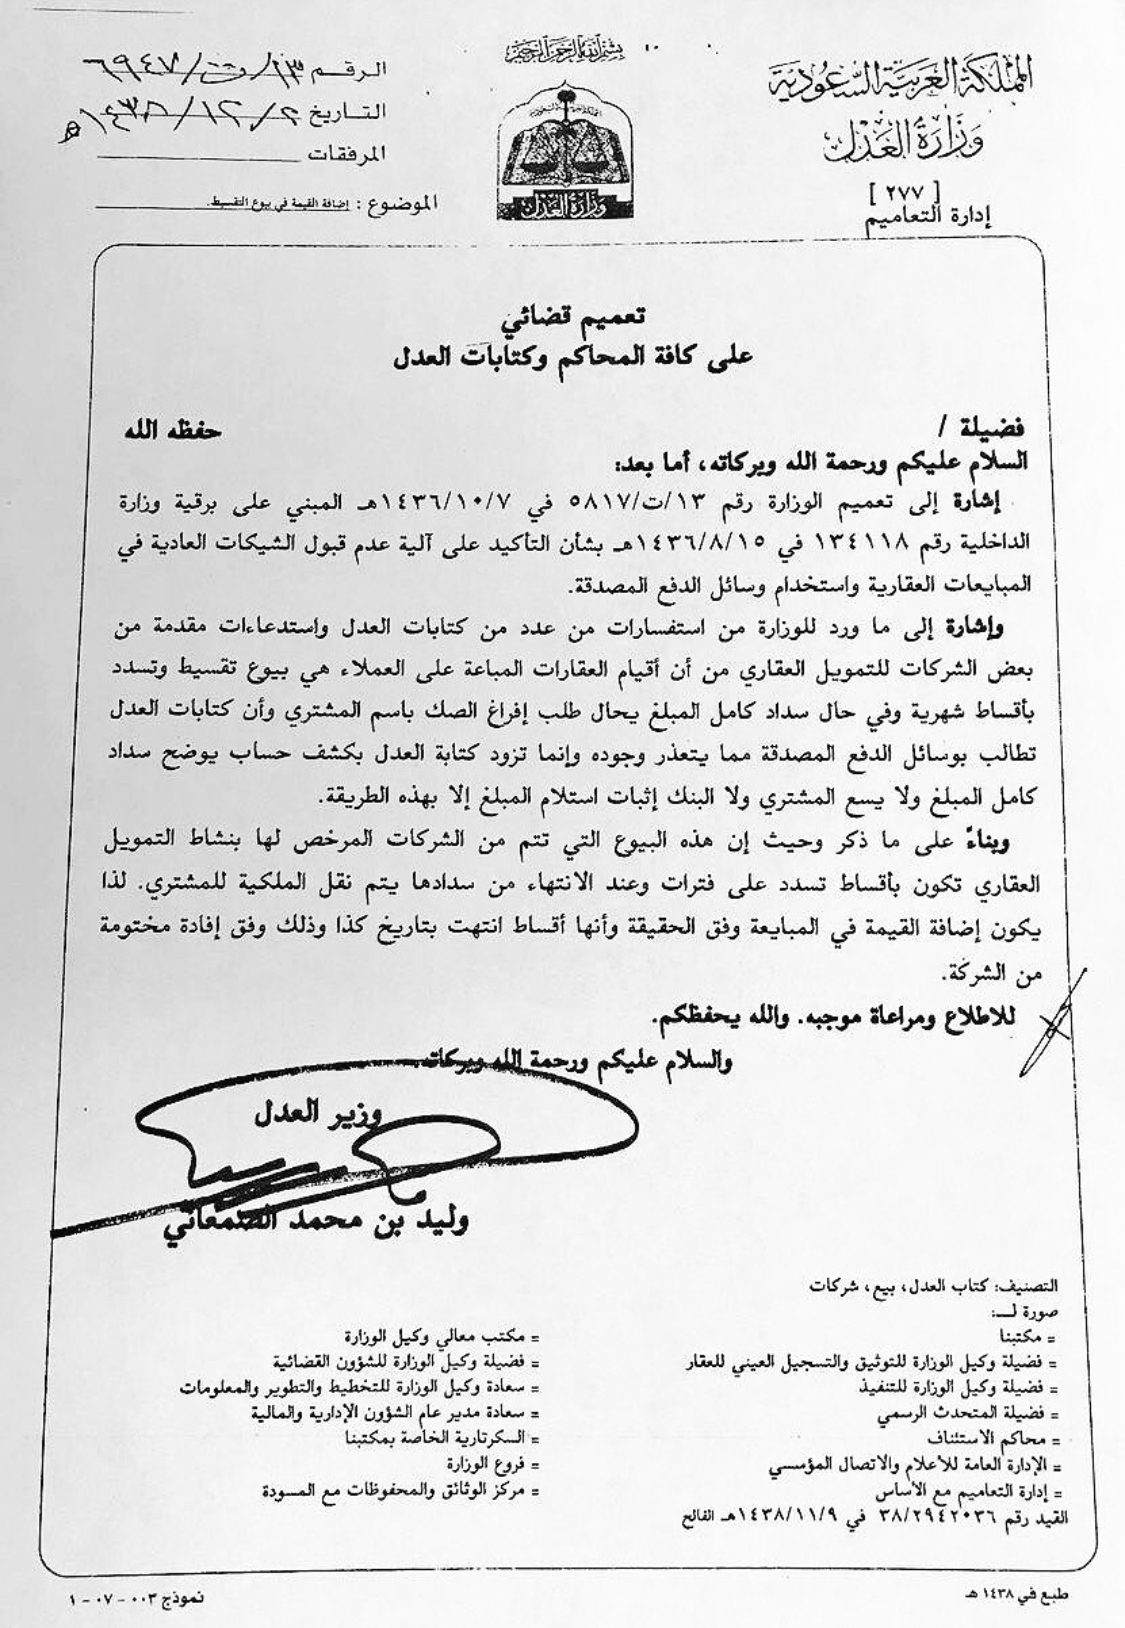 بسم الله الرحمن الرحيم
المملكة العربية السعودية
وزارة العدل
[ ٢٧٧ ]
إدارة التعاميم
وزارة العدل
الرقم ١٣/ت/٦٩٤٧
التاريخ ٢/١٢/١٤٣٨هـ
المرفقات
الموضوع : إضافة القيمة في بيوع التقسيط.
تعميم قضائي
على كافة المحاكم وكتابات العدل
فضيلة / حفظه الله
السلام عليكم ورحمة الله وبركاته، أما بعد:
إشارة إلى تعميم الوزارة رقم ١٣/ت/٥٨١٧ في ١٤٣٦/١٠/٧هـ المبني على برقية وزارة
الداخلية رقم ١٣٤١١٨ في ١٤٣٦/٨/١٥هـ بشأن التأكيد على آلية عدم قبول الشيكات العادية في
المبايعات العقارية واستخدام وسائل الدفع المصدقة.
وإشارة إلى ما ورد للوزارة من استفسارات من عدد من كتابات العدل واستدعاءات مقدمة من
بعض الشركات للتمويل العقاري من أن أقيام العقارات المباعة على العملاء هي بيوع تقسيط وتسدد
بأقساط شهرية وفي حال سداد كامل المبلغ يحال طلب إفراغ الصك باسم المشتري وأن كتابات العدل
تطالب بوسائل الدفع المصدقة مما يتعذر وجوده وإنما تزود كتابة العدل بكشف حساب يوضح سداد
كامل المبلغ ولا يسع المشتري ولا البنك إثبات استلام المبلغ إلا بهذه الطريقة.
وبناءً على ما ذكر وحيث إن هذه البيوع التي تتم من الشركات المرخص لها بنشاط التمويل
العقاري تكون بأقساط تسدد على فترات وعند الانتهاء من سدادها يتم نقل الملكية للمشتري. لذا
يكون إضافة القيمة في المبايعة وفق الحقيقة وأنها أقساط انتهت بتاريخ كذا وذلك وفق إفادة مختومة
من الشركة.
للاطلاع ومراعاة موجبه. والله يحفظكم.
والسلام عليكم ورحمة الله وبركاته
وزير العدل
وليد بن محمد الصمعاني
التصنيف: كتاب العدل، بيع، شركات
صورة لـ:
= مكتبنا
= فضيلة وكيل الوزارة للتوثيق والتسجيل العيني للعقار
= فضيلة وكيل الوزارة للتنفيذ
= فضيلة المتحدث الرسمي
= محاكم الاستئناف
= الإدارة العامة للأعلام والاتصال المؤسسي
= إدارة التعاميم مع الأساس
القيد رقم ٣٨/٢٩٤٢٠٣٦ في ١٤٣٨/١١/٩هـ الفالح
= مكتب معالي وكيل الوزارة
= فضيلة وكيل الوزارة للشؤون القضائية
= سعادة وكيل الوزارة للتخطيط والتطوير والمعلومات
= سعادة مدير عام الشؤون الإدارية والمالية
= السكرتارية الخاصة بمكتبنا
= فروع الوزارة
= مركز الوثائق والمحفوظات مع المسودة
طبع في ١٤٣٨ هـ
نموذج ٠٠٣ - ٠٧ - ١